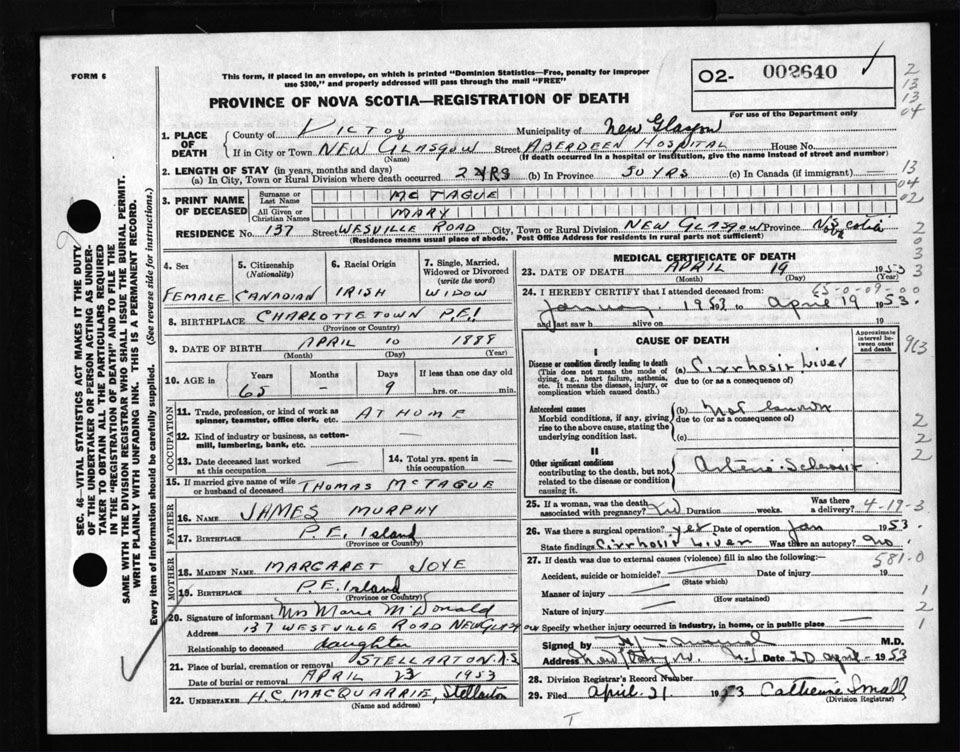 FORM 6
This form, if placed in an envelope, on which is printed "Dominion Statistics—Free, penalty for improper
use $300," and properly addressed will pass through the mail "FREE"
PROVINCE OF NOVA SCOTIA—REGISTRATION OF DEATH
O2- 002640
For use of the Department only
2
13
13
04
1. PLACE OF DEATH
County of Pictou Municipality of New Glasgow
If in City or Town NEW GLASGOW Street ABERDEEN HOSPITAL House No.
(Name) (If death occurred in a hospital or institution, give the name instead of street and number)
2. LENGTH OF STAY (in years, months and days)
(a) In City, Town or Rural Division where death occurred 2 YRS (b) In Province 50 YRS (c) In Canada (if immigrant) —
13
04
02
3. PRINT NAME OF DECEASED
Surname or Last Name MC TAGUE
All Given or Christian Names MARY
RESIDENCE No. 137 Street WESVILLE ROAD City, Town or Rural Division NEW GLASGOW Province
(Residence means usual place of abode. Post Office Address for residents in rural parts not sufficient)
4. Sex
FEMALE
5. Citizenship
(Nationality)
CANADIAN
6. Racial Origin
IRISH
7. Single, Married,
Widowed or Divorced
(write the word)
WIDOW
8. BIRTHPLACE CHARLOTTETOWN P.E.I
(Province or Country)
9. DATE OF BIRTH APRIL 10 1888
(Month) (Day) (Year)
10. AGE in
Years Months Days If less than one day old
65 - 9 hrs. or min.
OCCUPATION
11. Trade, profession, or kind of work as
spinner, teamster, office clerk, etc. AT HOME
12. Kind of industry or business, as cotton-
mill, lumbering, bank, etc. —
13. Date deceased last worked
at this occupation —
14. Total yrs. spent in
this occupation —
15. If married give name of wife
or husband of deceased THOMAS MCTAGUE
FATHER
16. NAME JAMES MURPHY
17. BIRTHPLACE P.E. Island
(Province or Country)
MOTHER
18. MAIDEN NAME MARGARET JOYE
19. BIRTHPLACE P.E. Island
(Province or Country)
20. Signature of informant Mrs Marie McDonald
Address 137 WESTVILLE ROAD NEW GLASGOW
Relationship to deceased daughter
21. Place of burial, cremation or removal STELLARTON N.S
Date of burial or removal APRIL 1953
22. UNDERTAKER H.C. MACQUARRIE, Stellarton
(Name and address)
MEDICAL CERTIFICATE OF DEATH
23. DATE OF DEATH APRIL 19 1953
(Month) (Day) (Year)
65-0-09-00
24. I HEREBY CERTIFY that I attended deceased from:
January 1953 to April 19 1953.
and last saw h alive on 19
CAUSE OF DEATH
Approximate
interval be-
tween onset
and death
I
Disease or condition directly leading to death
(This does not mean the mode of
dying, e.g., heart failure, asthenia,
etc. It means the disease, injury, or
complication which caused death.)
(a) Cirrhosis Liver
due to (or as a consequence of)
Antecedent causes
Morbid conditions, if any, giving
rise to the above cause, stating the
underlying condition last.
(b) Not known
due to (or as a consequence of)
(c)
II
Other significant conditions
contributing to the death, but not
related to the disease or condition
causing it.
Arterio-Sclerosis
25. If a woman, was the death
associated with pregnancy? Duration weeks. Was there a delivery? 4-19-3
26. Was there a surgical operation? yes Date of operation Jan 1953.
State findings Cirrhosis Liver Was there an autopsy? no
27. If death was due to external causes (violence) fill in also the following:— 581.0
Accident, suicide or homicide? Date of injury 19
(State which)
Manner of injury
(How sustained)
Nature of injury
Specify whether injury occurred in industry, in home, or in public place —
Signed by M.D.
Address Date 20 April 1953
28. Division Registrar's Record Number
29. Filed April 21 1953 Catherine Small
(Division Registrar)
SEC. 46—VITAL STATISTICS ACT MAKES IT THE DUTY
OF THE UNDERTAKER OR PERSON ACTING AS UNDER-
TAKER TO OBTAIN ALL THE PARTICULARS REQUIRED
IN THE "REGISTRATION OF DEATH" AND TO FILE THE
SAME WITH THE DIVISION REGISTRAR WHO SHALL ISSUE THE BURIAL PERMIT.
WRITE PLAINLY WITH UNFADING INK. THIS IS A PERMANENT RECORD.
Every item of information should be carefully supplied. (See reverse side for instructions.)